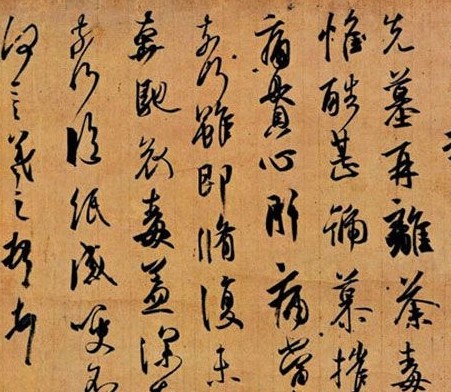 先墓再離荼毒
惟酷甚號慕摧
痛貫心肝痛當
奈何雖即脩復未
奔馳哀毒益深奈
奈何臨紙感哽不
何言羲之頓首